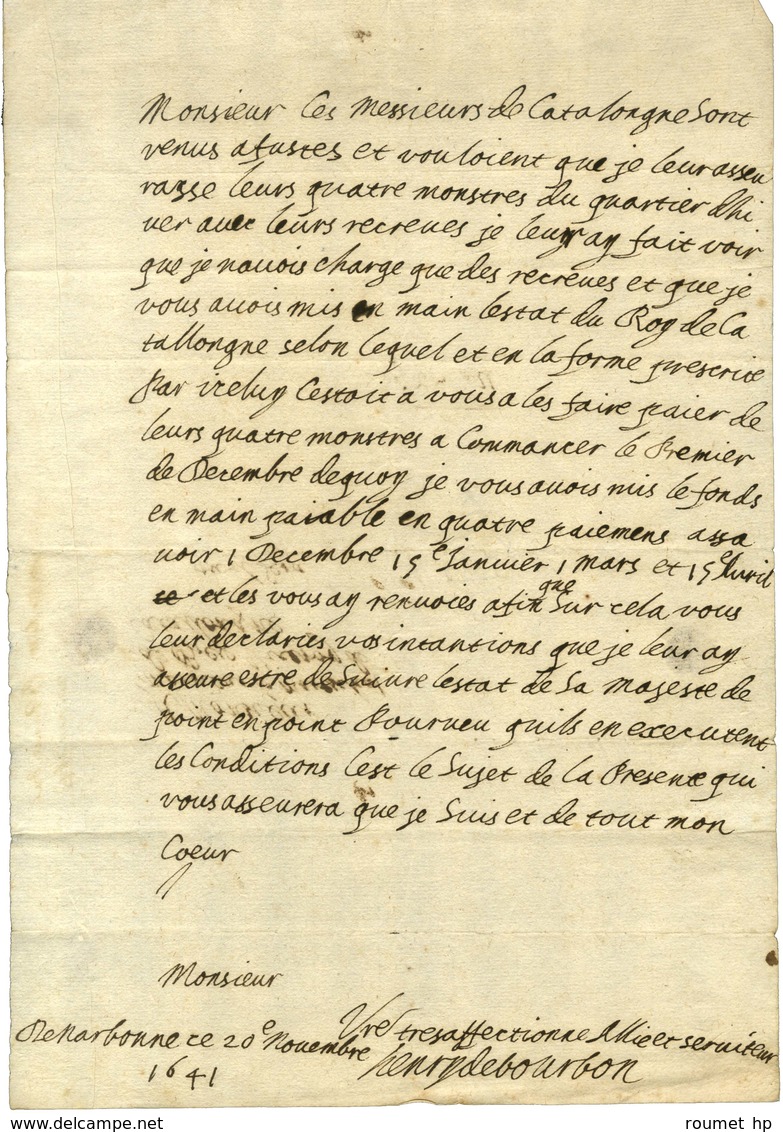 Monsieur Ces Messieurs de Catalongne Sont
venus a fustes et vouloient que je leur asseu
rasse leurs quatre monstres du quartier dhi
ver avec leurs recreues je leur ay fait voir
que je navois charge que des recreues et que je
vous avois mis en main lestat du Roy de Ca
tallongne selon lequel et en la forme prescrite
Par iceluy Cestoit a vous a les faire paier de
leurs quatre monstres a Commancer le Premier
de Decembre dequoy je vous avois mis le fonds
en main paiable en quatre paiemens assa
voir 1 Decembre 15e Janvier 1 mars et 15e Avril
et les vous ay renvoies afin que Sur cela vous
leur declaries vos intantions que je leur ay
asseure estre de Suivre lestat de Sa Majeste de
point en point Pourveu quils en executent
les Conditions Cest le Sujet de la Presente qui
vous asseurera que je Suis et de tout mon
Coeur
Monsieur
Vre tresaffectionne Allie et serviteur
De Narbonne ce 20e Novembre
1641
henry de bourbon
roumet hp
www.delcampe.net
roumet hp